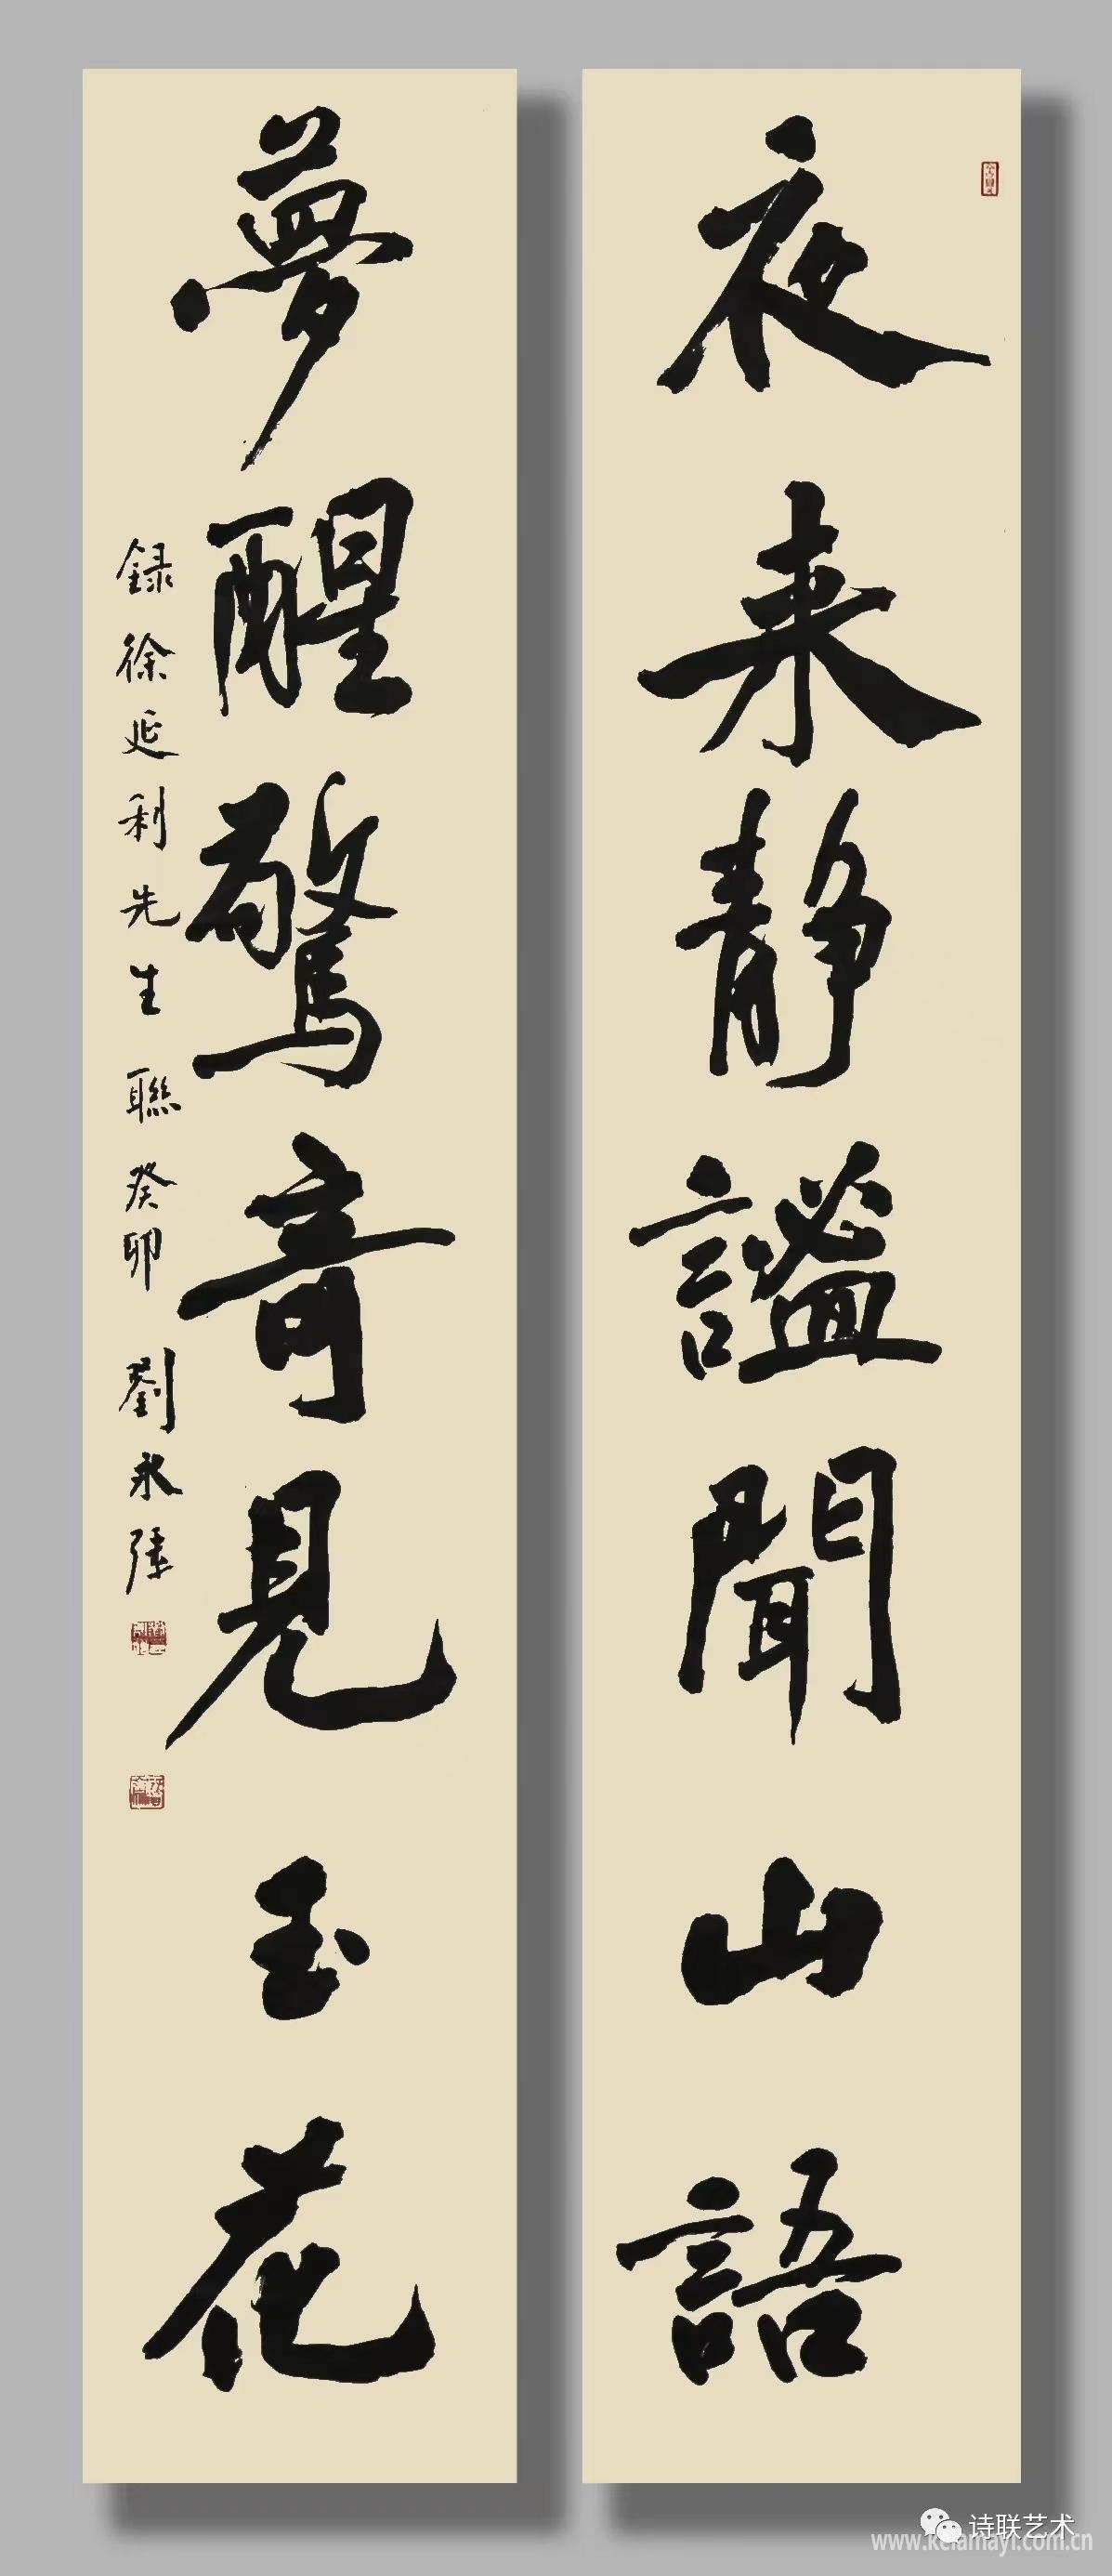 夜来静謐聞山語
夢醒驚奇見玉花
録徐延利先生聯癸卯劉永强
诗联艺术
www.kelamayi.com.cn